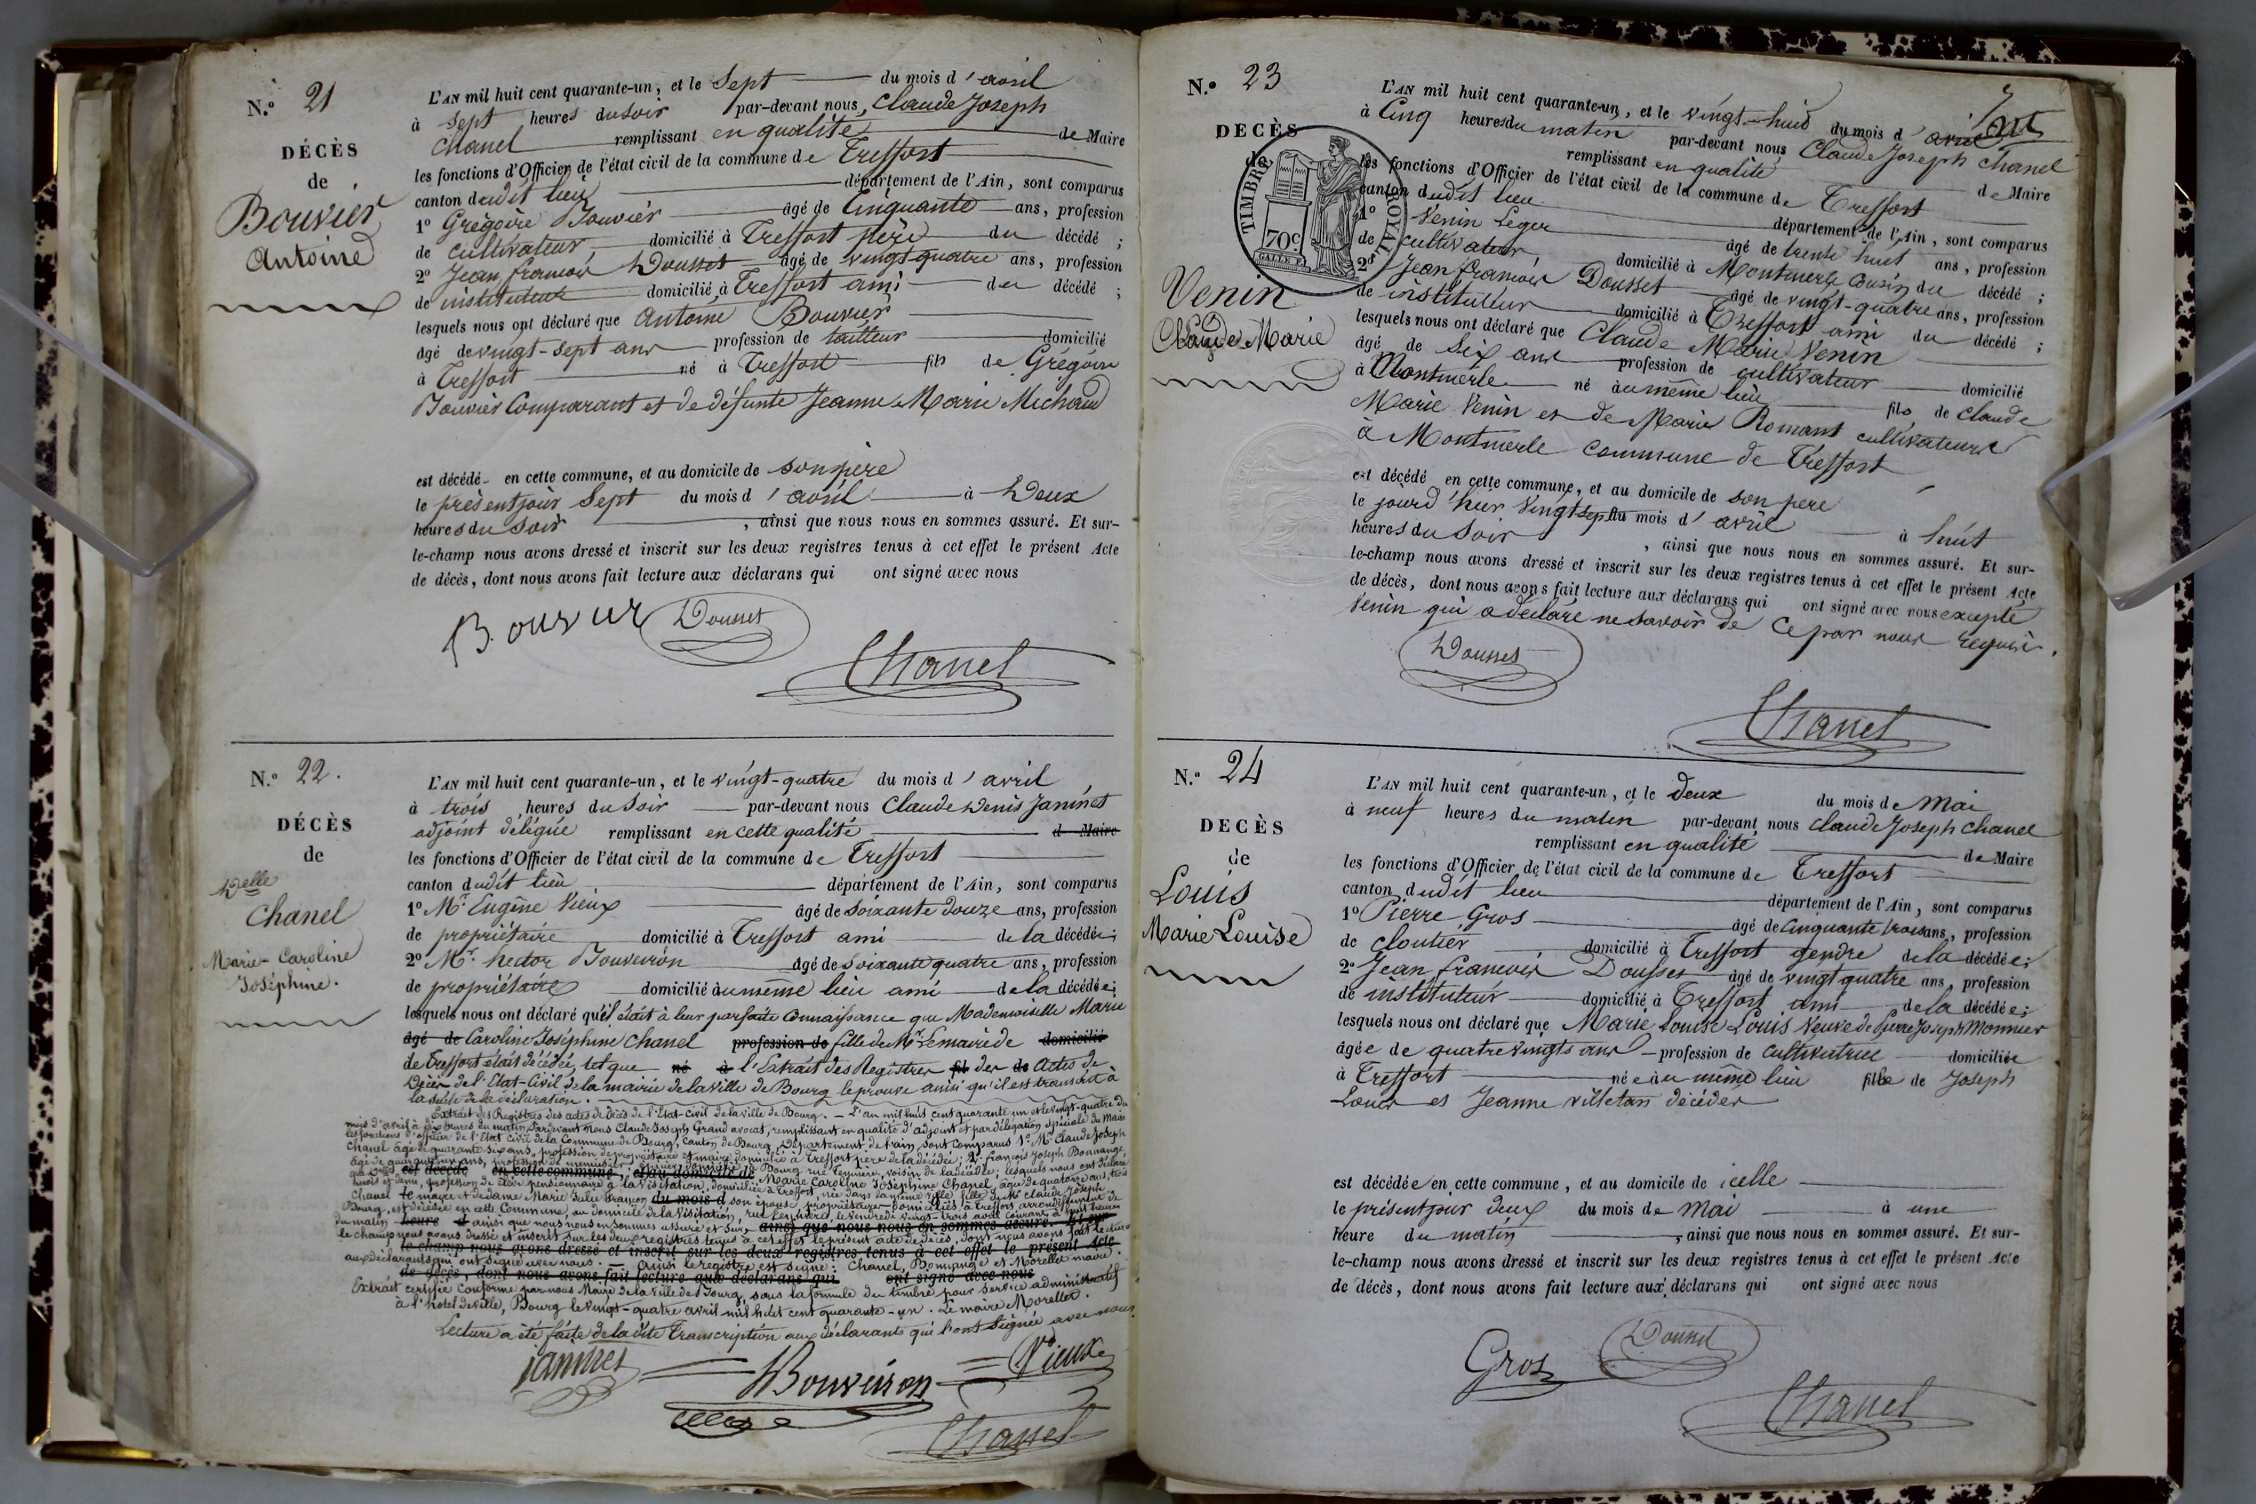 N.° 21
DÉCÈS
de
Bouvier
Antoine
L'AN mil huit cent quarante-un, et le Sept du mois d'avril
à Sept heures du soir par-devant nous Claude Joseph
Chanel remplissant en qualité de Maire
les fonctions d'Officier de l'état civil de la commune de Treffort
canton dudit lieu département de l'Ain, sont comparus
1° Grégoire Bouvier âgé de Cinquante ans, profession
de cultivateur, domicilié à Treffort père du décédé ;
2° Jean françois Dousset âgé de vingt quatre ans, profession
de instituteur domicilié à Treffort ami du décédé ;
lesquels nous ont déclaré que Antoine Bouvier
âgé de vingt-sept ans profession de tailleur domicilié
à Treffort né à Treffort fils de Grégoire
Bouvier Comparant et de défunte Jeanne Marie Michaud
est décédé en cette commune, et au domicile de son père
le présent jour Sept du mois d'avril à Deux
heures du Soir, ainsi que nous nous en sommes assuré. Et sur-
le-champ nous avons dressé et inscrit sur les deux registres tenus à cet effet le présent Acte
de décès, dont nous avons fait lecture aux déclarans qui ont signé avec nous
Bouvier Dousset
Chanel
N.° 22.
DÉCÈS
de
Delle
Chanel
Marie-Caroline
Joséphine.
L'AN mil huit cent quarante-un, et le vingt-quatre du mois d'avril
à trois heures du Soir par-devant nous Claude Denis Janinet
adjoint délégué remplissant en cette qualité d Maire
les fonctions d'Officier de l'état civil de la commune de Treffort
canton dudit lieu département de l'Ain, sont comparus
1° Mr Eugène Vieux âgé de soixante douze ans, profession
de propriétaire domicilié à Treffort ami de la décédée ;
2° Mr hector Bouveiron âgé de soixante quatre ans, profession
de propriétaire domicilié au même lieu ami de la décédée ;
lesquels nous ont déclaré qu'il était à leur parfaite connaissance que Mademoiselle Marie
âgé de Caroline Joséphine Chanel profession de fille de Mr Lemaire de domicilié
de Treffort était décédée, tel que né à l'Extrait des Registres fil des de Actes de
Décès de l'Etat-Civil de la mairie de la ville de Bourg le prouve ainsi qu'il est transcrit à
la suite de la déclaration.
Extrait des Registres des actes de Décès de l'Etat-Civil de la ville de Bourg. — L'an mil huit cent quarante un et le vingt-quatre du
mois d'avril à dix heures du matin, Pardevant Nous Claude Joseph Grand avocat, remplissant en qualité d'adjoint et par délégation spéciale de Maire
les fonctions d'officier de l'Etat Civil de la Commune de Bourg, Canton de Bourg, Département de l'ain, sont Comparus 1° Mr Claude Joseph
Chanel âgé de quarante six ans, profession de propriétaire et maire, domicilié à Treffort père de la décédée ; 2° françois Joseph Bonnange
Bourg, rue Teynière, voisin de la décédée ; lesquels nous ont déclaré
est décédé en cette commune, et au domicile de Marie Caroline Joséphine Chanel, âgée de quatorze ans, trois
mois et demi, profession de élève pensionnaire à la Visitation, domiciliée à Treffort, née dans la même ville, fille de Mr Claude Joseph
Chanel le maire et de dame Marie Julie du mois d son épouse, propriétaires domiciliés à Treffort, arrondissement de
Bourg, est décédée en cette Commune, au domicile de la Visitation, rue Teynière, le vendredi vingt-trois avril courant, à huit heures
du matin heure d ainsi que nous nous en sommes assuré et sur ainsi que nous nous en sommes assuré. Et sur
le champ nous avons dressé et inscrit sur les deux registres tenus à cet effet le présent acte de décès, dont nous avons fait lecture
le-champ nous avons dressé et inscrit sur les deux registres tenus à cet effet le présent Acte
aux déclarants qui ont signé avec nous. — Ainsi le registre est signé : Chanel, Bonnange et Morellet maire.
de décès, dont nous avons fait lecture aux déclarans qui ont signé avec nous
Extrait certifié Conforme par nous Maire de la ville de Bourg, sous la formule du timbre pour service administratif
à l'hôtel de ville, Bourg le vingt-quatre avril mil huit cent quarante-un. Le maire Morellet.
Lecture a été faite de la dite Transcription aux déclarants qui l'ont Signée avec nous.
Janinet Bouveiron Vieux
Chanel
N.° 23
DECÈS
de
TIMBRE ROYAL
70c
Venin
Claude Marie
L'AN mil huit cent quarante-un, et le vingt-huit du mois d'avril
à Cinq heures du matin par-devant nous Claude Joseph Chanel
remplissant en qualité de Maire
les fonctions d'Officier de l'état civil de la commune de Treffort
canton dudit lieu département de l'Ain, sont comparus
1° Venin Leger âgé de trente huit ans, profession
de cultivateur, domicilié à Montmerle Cousin du décédé ;
2° Jean françois Dousset âgé de vingt-quatre ans, profession
de instituteur domicilié à Treffort ami du décédé ;
lesquels nous ont déclaré que Claude Marie Venin
âgé de Six ans profession de cultivateur domicilié
à Montmerle né au même lieu fils de Claude
Marie Venin et de Marie Romant cultivateurs
à Montmerle Commune de Treffort
est décédé en cette commune, et au domicile de son pere
le jourd'hier Vingt sept du mois d'avril à huit
heures du Soir, ainsi que nous nous en sommes assuré. Et sur-
le-champ nous avons dressé et inscrit sur les deux registres tenus à cet effet le présent Acte
de décès, dont nous avons fait lecture aux déclarans qui ont signé avec nous excepté
Venin qui a déclaré ne savoir de ce par nous requis.
Dousset
Chanel
N.° 24
DECÈS
de
Louis
Marie Louise
L'AN mil huit cent quarante-un, et le Deux du mois de Mai
à neuf heures du matin par-devant nous Claude Joseph Chanel
remplissant en qualité de Maire
les fonctions d'Officier de l'état civil de la commune de Treffort
canton dudit lieu département de l'Ain, sont comparus
1° Pierre Gros âgé de Cinquante trois ans, profession
de Cloutier domicilié à Treffort gendre de la décédée ;
2° Jean françois Dousset âgé de vingt quatre ans, profession
de instituteur domicilié à Treffort ami de la décédée ;
lesquels nous ont déclaré que Marie Louise Louis Veuve de Pierre Joseph Monnier
âgée de quatre vingts ans profession de cultivatrice domiciliée
à Treffort née au même lieu fille de Joseph
Louis et Jeanne Villetan décédés
est décédée en cette commune, et au domicile de icelle
le présent jour deux du mois de Mai à une
heure du matin, ainsi que nous nous en sommes assuré. Et sur-
le-champ nous avons dressé et inscrit sur les deux registres tenus à cet effet le présent Acte
de décès, dont nous avons fait lecture aux déclarans qui ont signé avec nous
Gros Dousset
Chanel